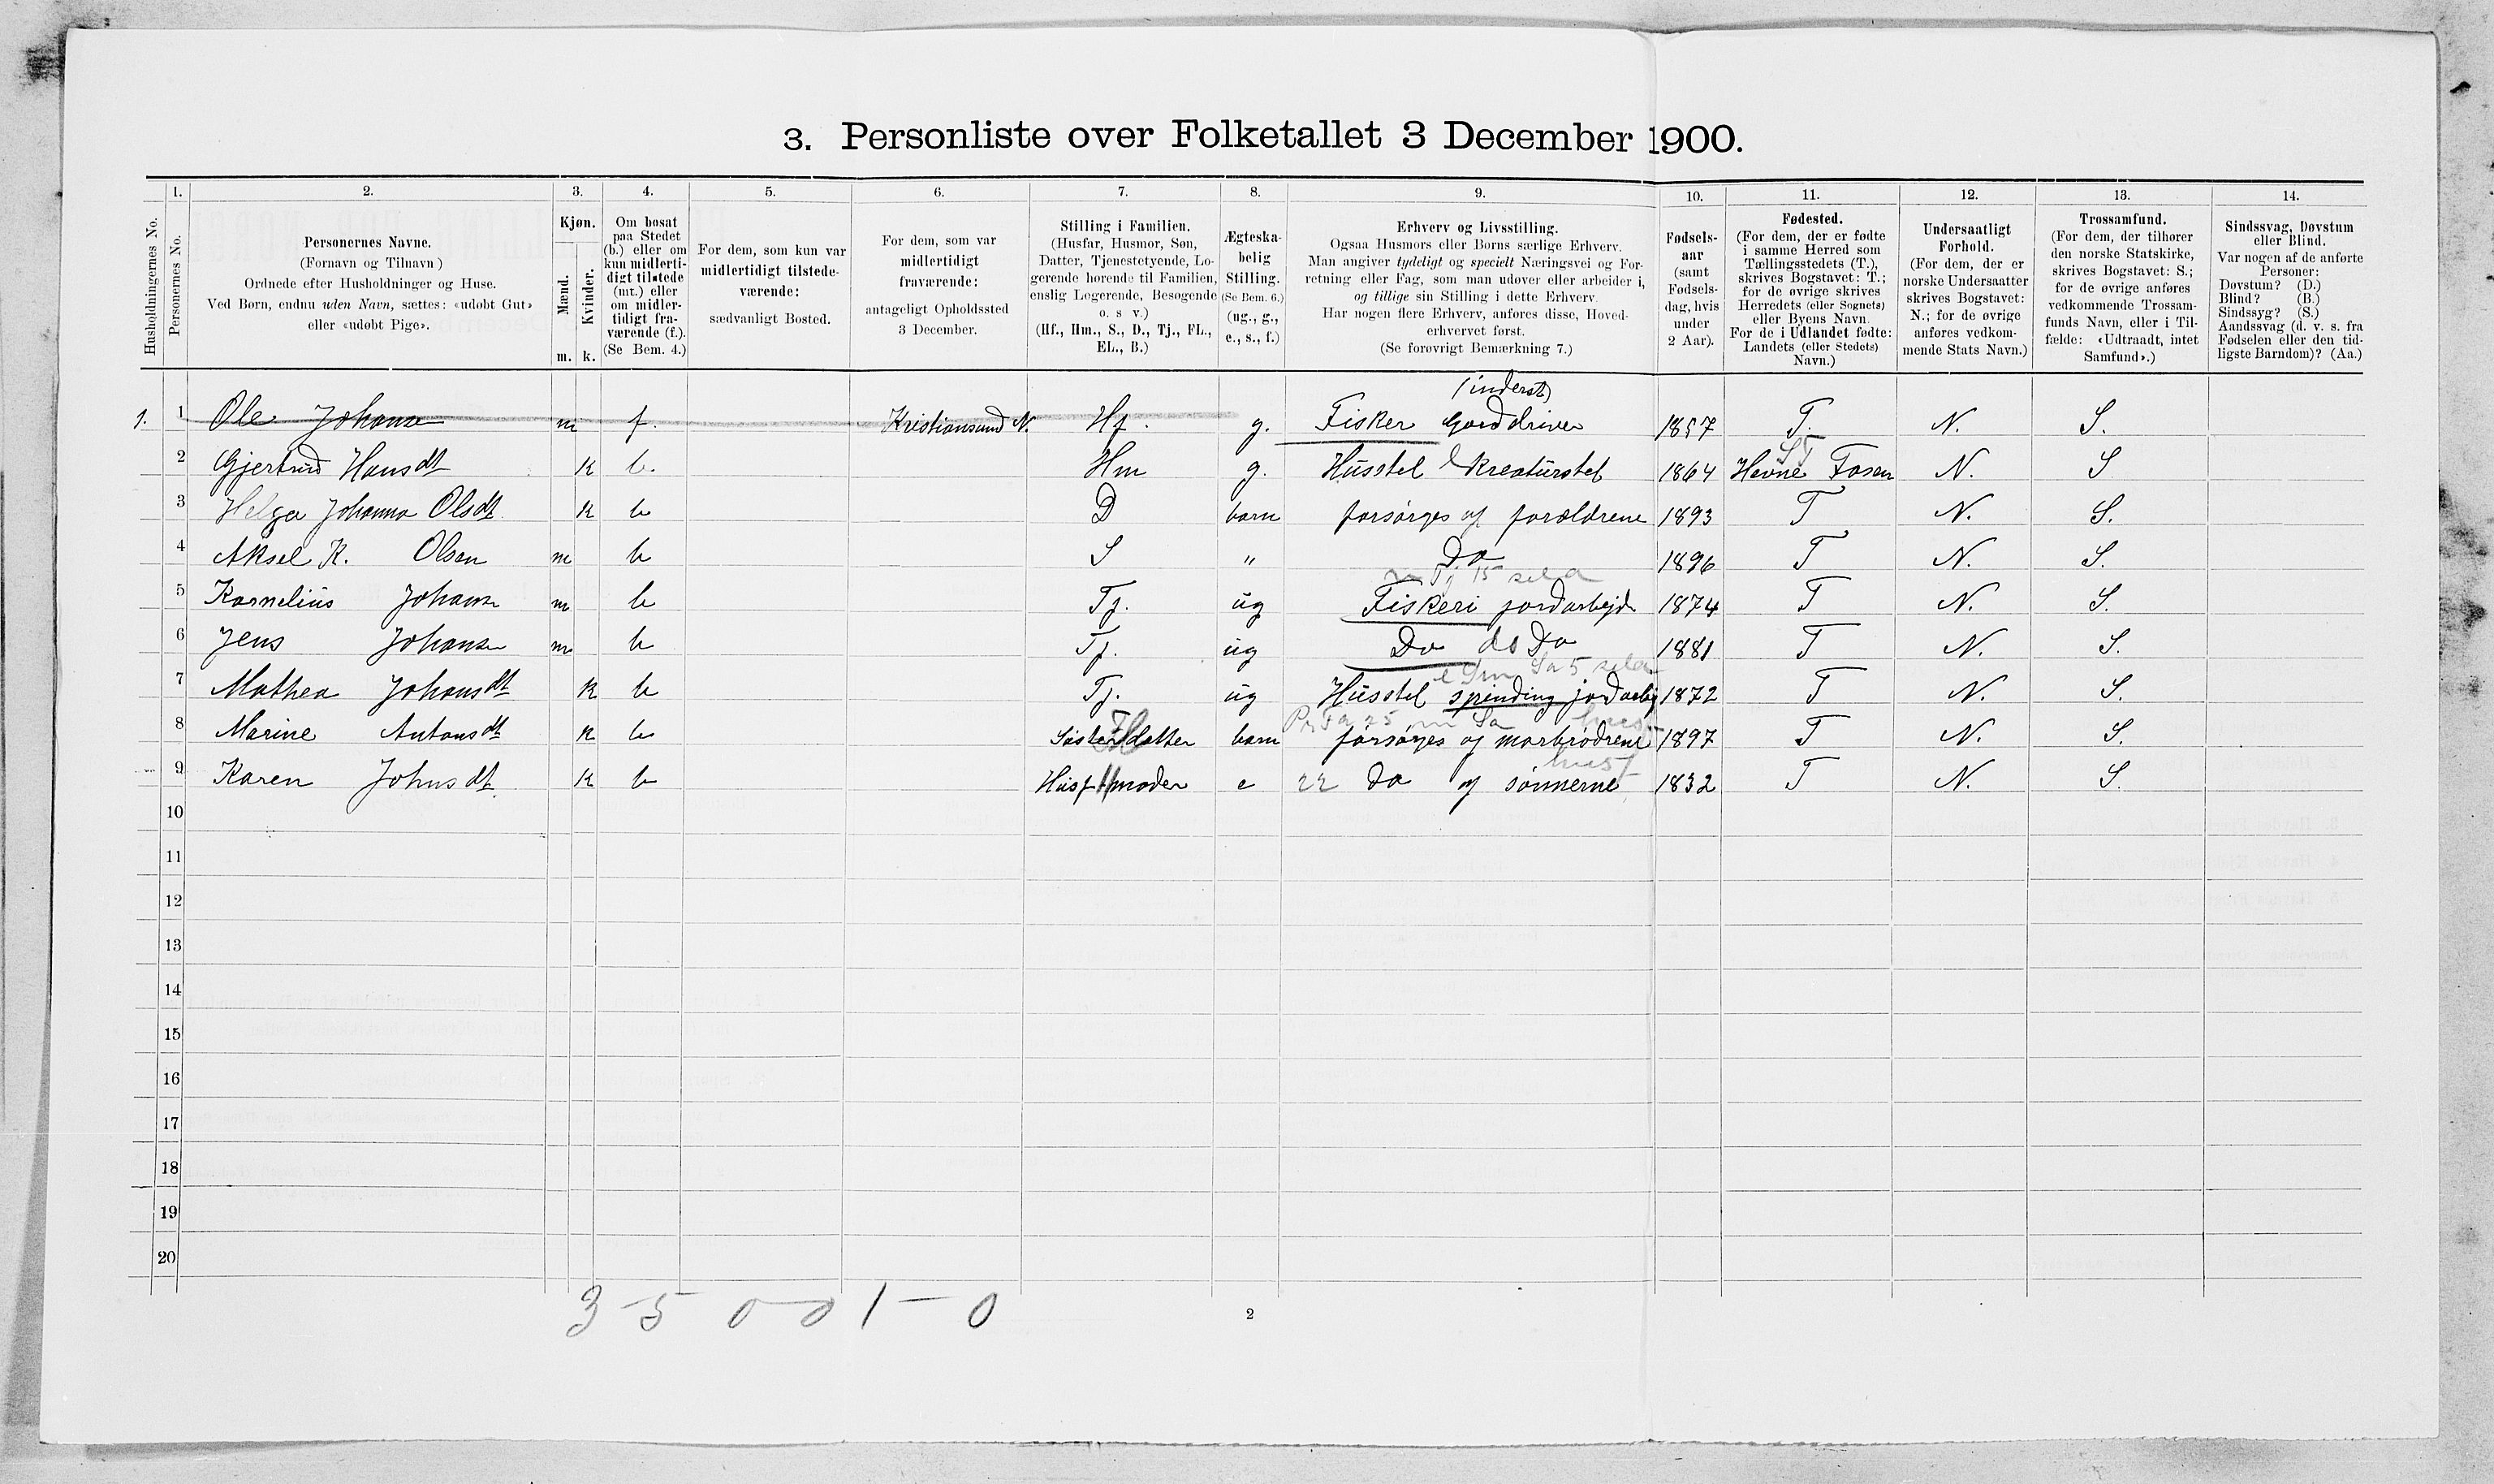 3. Personliste over Folketallet 3 December 1900.
1. 2. 3. 4. 5. 6. 7. 8. 9. 10. 11. 12. 13. 14.
Husholdningernes No.
Personernes No.
Personernes Navne.
(Fornavn og Tilnavn)
Ordnede efter Husholdninger og Huse.
Ved Børn, endnu uden Navn, sættes: «udøbt Gut»
eller «udøbt Pige».
Kjøn.
Mænd.
Kvinder.
m. k.
Om bosat
paa Stedet
(b.) eller om
kun midlerti-
digt tilstede
(mt.) eller
om midler-
tidigt fra-
værende (f.).
(Se Bem. 4.)
For dem, som kun var
midlertidigt tilstede-
værende:
sædvanligt Bosted.
For dem, som var
midlertidigt
fraværende:
antageligt Opholdssted
3 December.
Stilling i Familien.
(Husfar, Husmor, Søn,
Datter, Tjenestetyende, Lo-
gerende hørende til Familien,
enslig Logerende, Besøgende
o. s v.)
(Hf., Hm., S., D., Tj., FL.,
EL., B.)
Ægteska-
belig
Stilling.
(Se Bem. 6.)
(ug., g.,
e., s., f.)
Erhverv og Livsstilling.
Ogsaa Husmors eller Børns særlige Erhverv.
Man angiver tydeligt og specielt Næringsvei og For-
retning eller Fag, som man udøver eller arbeider i,
og tillige sin Stilling i dette Erhverv.
Har nogen flere Erhverv, anføres disse, Hoved-
erhvervet først.
(Se forøvrigt Bemærkning 7.)
Fødsels-
aar
(samt
Fødsels-
dag, hvis
under
2 Aar).
Fødested.
(For dem, der er fødte
i samme Herred som
Tællingsstedets (T.),
skrives Bogstavet: T.;
for de øvrige skrives
Herredets (eller Sognets)
eller Byens Navn.
For de i Udlandet fødte:
Landets (eller Stedets)
Navn.)
Undersaatligt
Forhold.
(For dem, der er
norske Undersaatter
skrives Bogstavet:
N.; for de øvrige
anføres vedkom-
mende Stats Navn.)
Trossamfund.
(For dem, der tilhører
den norske Statskirke,
skrives Bogstavet: S.;
for de øvrige anføres
vedkommende Trossam-
funds Navn, eller i Til-
fælde: «Udtraadt, intet
Samfund».)
Sindssvag, Døvstum
eller Blind.
Var nogen af de anførte
Personer:
Døvstum? (D.)
Blind? (B.)
Sindssyg? (S.)
Aandssvag (d. v. s. fra
Fødselen eller den tid-
ligste Barndom)? (Aa.)
(inderst)
1. 1 Ole Johansen m f. Kristiansund N. Hf. g. Fisker Gaarddriver 1857 T. N. S.
2 Gjertrud Hansdt k b. Hm g. Husstel Kreaturstel 1864 Hevne Fosen N. S
3 Helga Johanna Olsdt k b D barn forsørges af forældrene 1893 T N. S.
4 Aksel K. Olsen m b S " Do 1896 T N. S.
5 Kornelius Johansen m b Tj. ug Fiskeri jordarbejde 1874 T N. S.
6 Jens Johansen m b Tj. ug Do do Do 1881 T N. S.
7 Mathea Johansdt k b Tj. ug Husstel spinding jordarbej 1872 T N. S.
8 Marine Antonsdt k b Søsterdatter barn forsørges af morbrødrene 1897 T N. S.
9 Karen Johnsdt k b Husf moder e 22 Do af sønnerne 1832 T N. S.
10
11
12
13
14
15
16
17
18
19
20
3 - 5 0 - 0 1 - 0
2